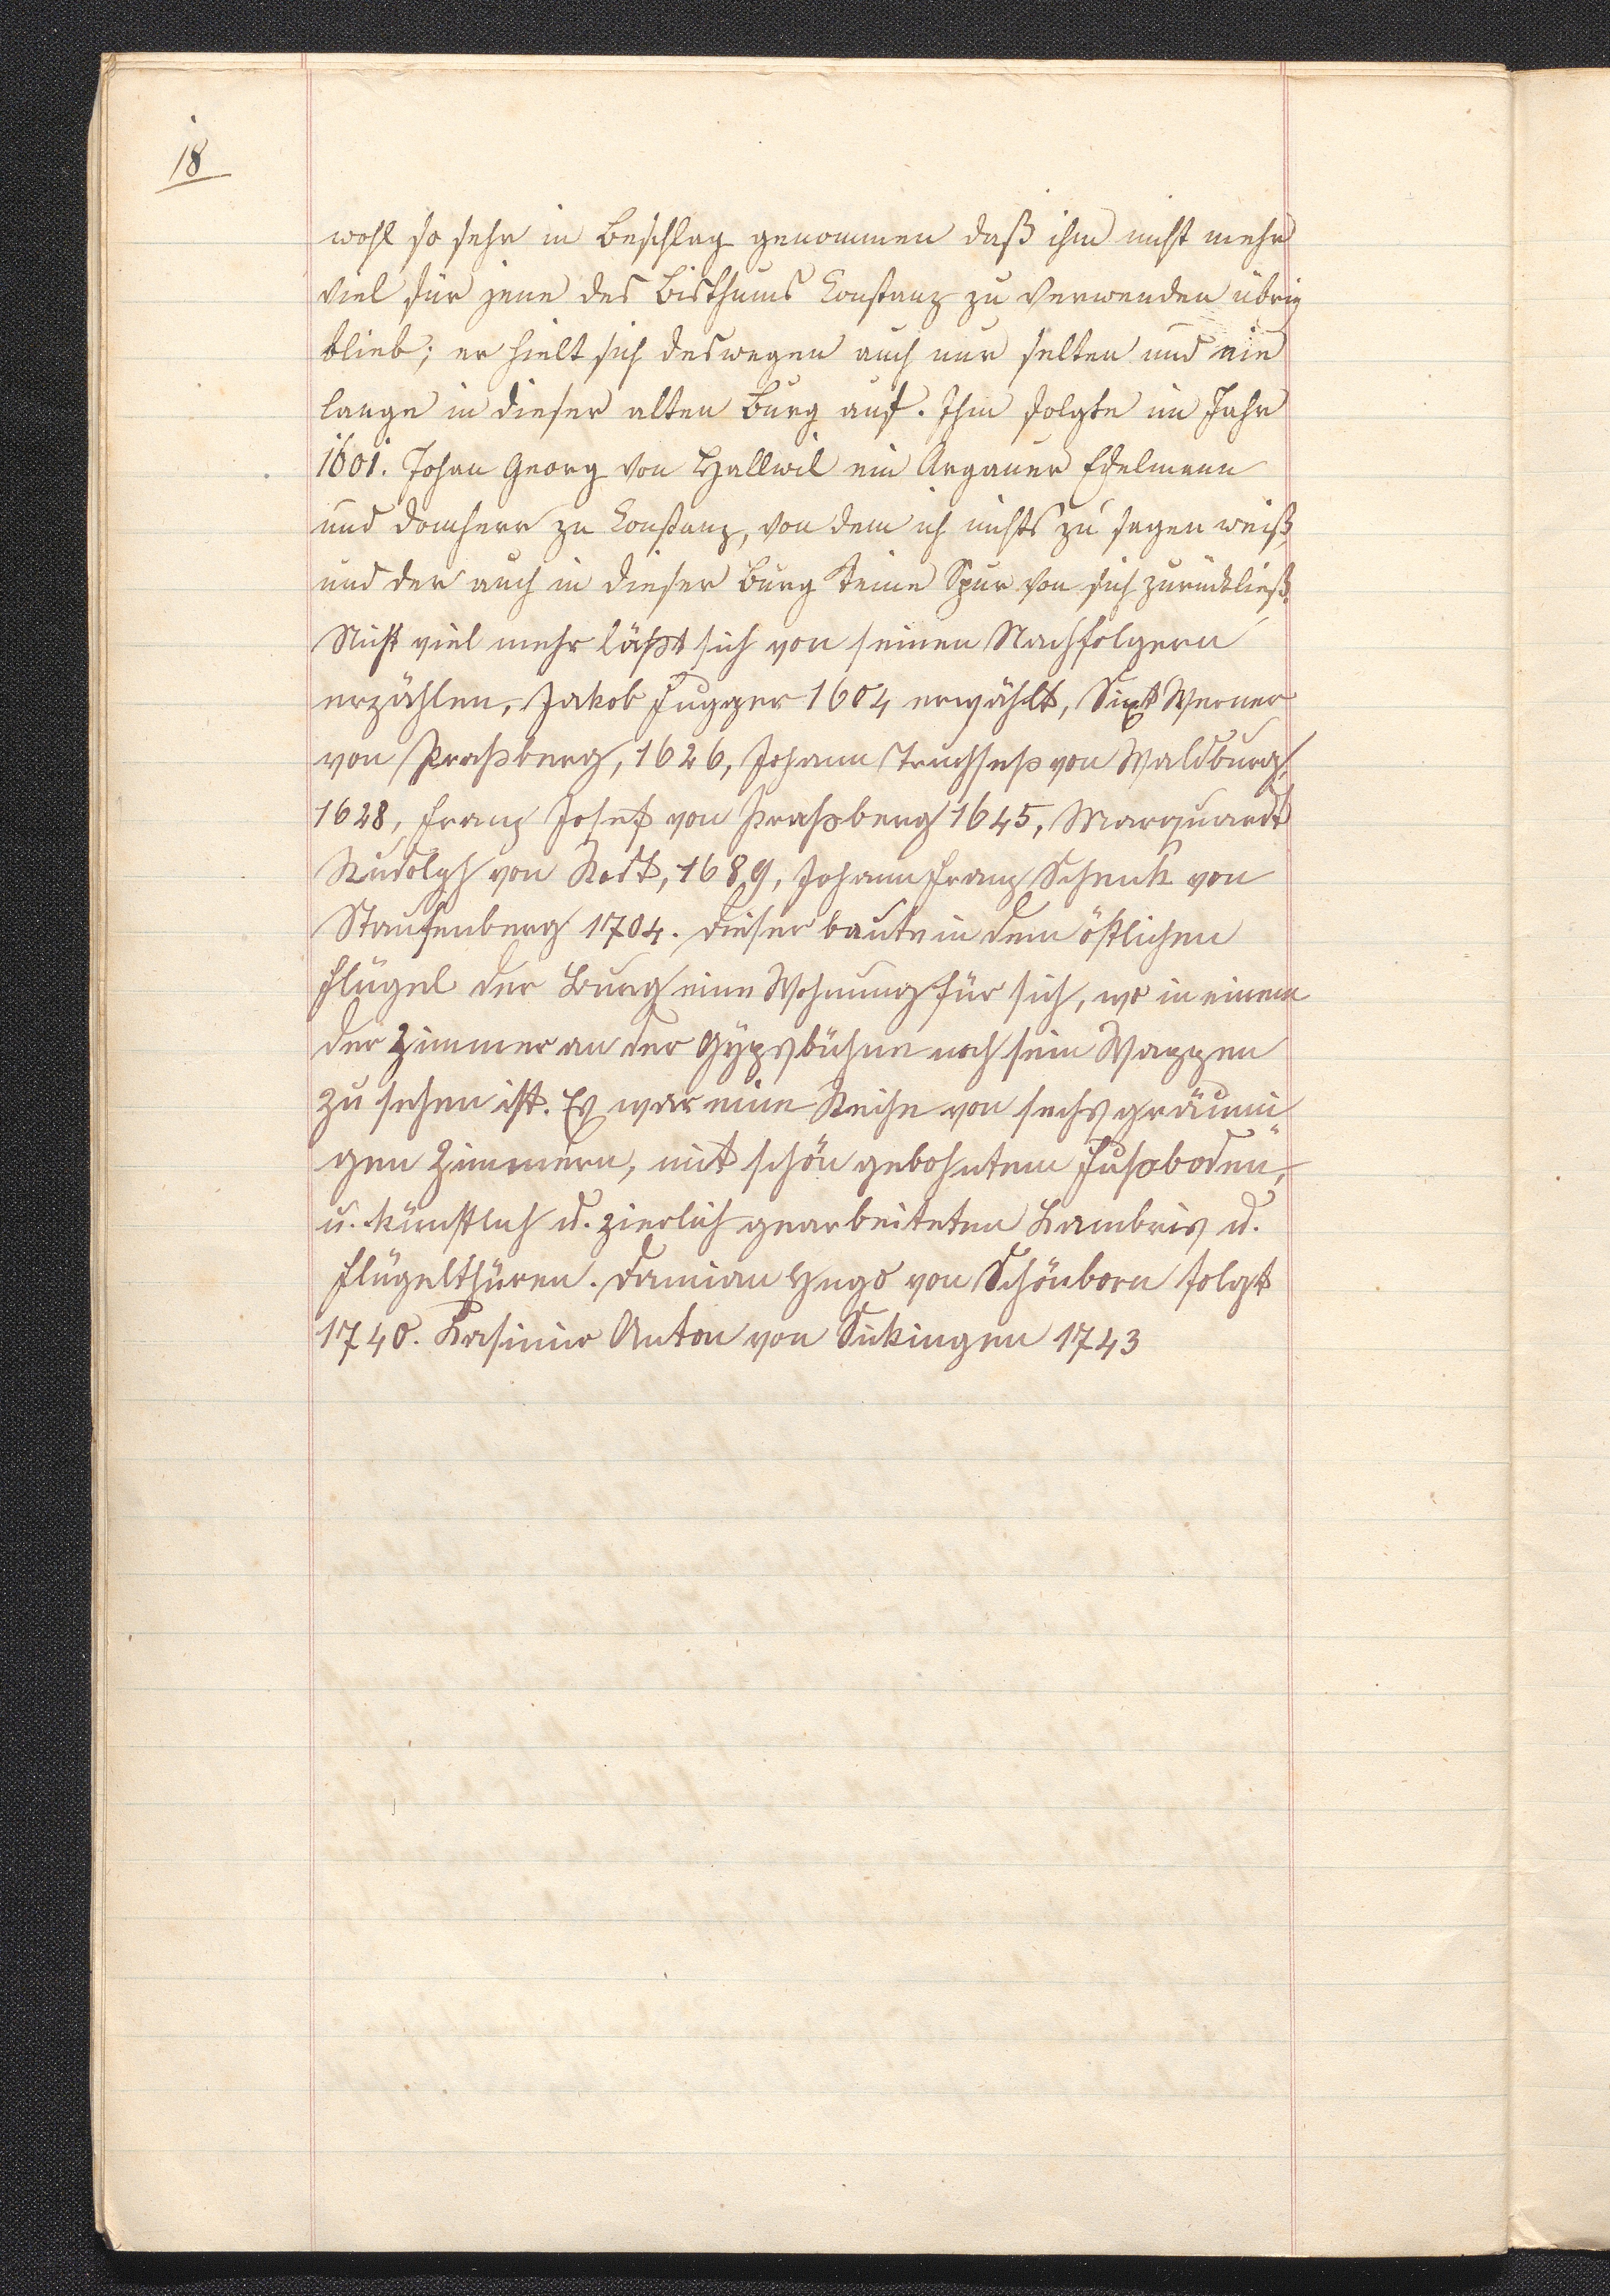 18
wohl so sehr in Beschlag genommen daß ihm nicht mehr
viel für jene des Bisthums Constanz zu verwenden übrig
blieb; er hielt sich deswegen auch nur selten und nie
lange in dieser alten Burg auf. Ihm folgte im Jahr
1601. Johan Georg von Hallwil ein Argauer Edelmann
und Domherr zu Constanz, von dem ich nichts zu sagen weiß,
und der auch in dieser Burg keine Spur von sich zurückließ.
Nicht viel mehr läßt sich von seinen Nachfolgern
erzählen, Jakob Fugger 1604 erwählt, Sixt Werner
von Praßberg, 1626, Johann Truchseß von Waldburg,
1628, Franz Josef von Praßberg 1645, Marquardt
Rudolph von Rodt, 1689, Johann Franz Schenk von
Staufenberg 1704. Dieser baute in dem östlichen
Flügel der Burg eine Wohnung für sich, wo in einem
der Zimmer an der Gypsbühne noch sein Wappen
zu sehen ist. Es war eine Reihe von sechs gräumi
gen Zimmern, mit schön gebohntem Fußboden,
u. künstlich u. zierlich gearbeiteten Lambris u.
Flügelthüren. Damian Hugo von Schönborn folgt
1740. Kasimir Anton von Sickingen 1743